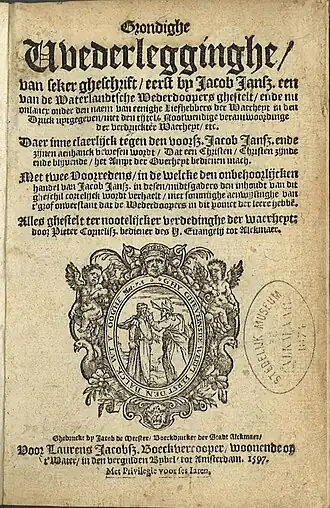 Grondighe
Wederlegginghe/
van seker gheschrift / eerst by Jacob Jansz. een
van de Waterlandtsche Wederdoopers ghestelt / ende nu
onlancx onder den naem van eenighe Liefhebbers der Waerheyt in den
Druck uytgegeven / met den tijtel: Nootwendige verantwoordinge
der verdruckter Waerheyt / etc.
Daer inne claerlijck tegen den voorsz. Jacob Jansz. ende
zijnen aenhanck bewesen wordt / Dat een Christen / Christen zijnde
ende blijvende / het Ampt der Overheyt bedienen mach.
Met twee Voorredens / in de welcke den onbehoorlijcken
handel van Jacob Jansz. in desen / midtsgaders den inhoudt van dit
gheschil cortelijck wordt verhaelt / met sommighe aenwijsinghe van
't grof onverstant dat de Wederdoopers in dit poinct der leere hebbē.
Alles ghestelt ter nootelijcker verdedinghe der waerheyt:
door Pieter Cornelisz. bediener des H. Euangelij tot Alckmaer.
STEDELIJK MUSEUM
TE
ALKMAAR
1875
Ghedruckt by Jacob de Meester / Boeckdrucker der Stadt Alckmaer /
Voor Laurens Jacobsz. Boeckvercooper, woonende op
't Water / in den vergulden Bybel / tot Amsterdam. 1597.
Met Privilegie voor ses Iaren.